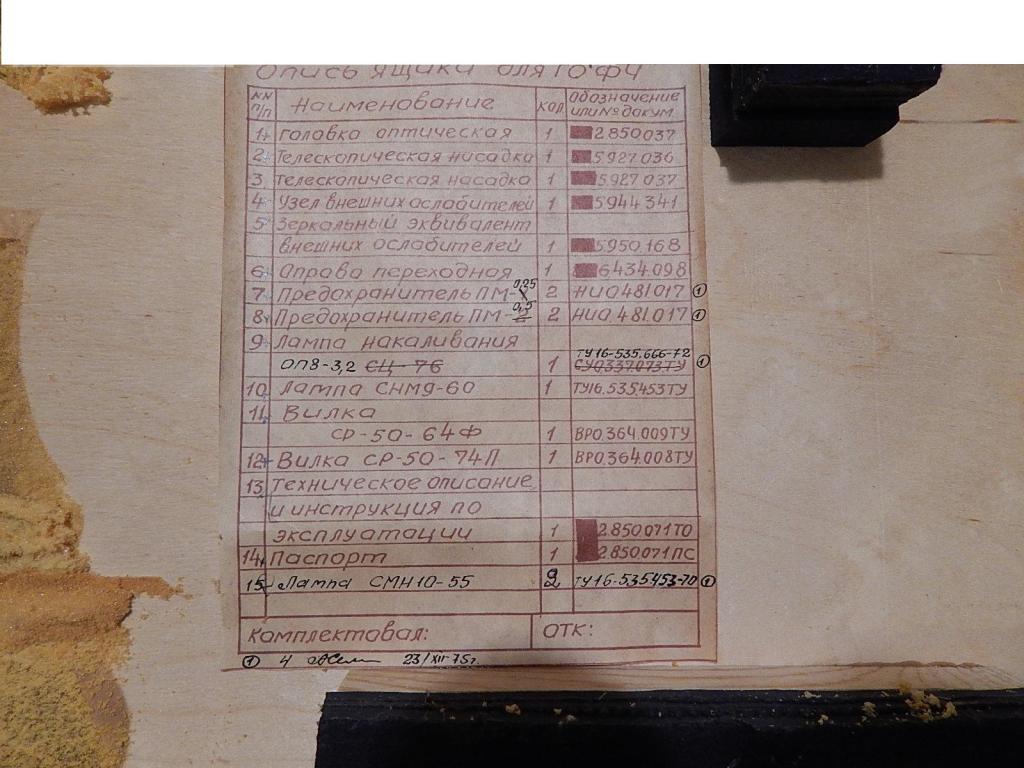 Опись ящика для ГОФЧ
NN Наименование кол. Обозначение
п/п или № докум.
1 Головка оптическая 1 2.850037
2 Телескопическая насадка 1 5.927036
3 Телескопическая насадка 1 5.927037
4 Узел внешних ослабителей 1 5944341
5 Зеркальный эквивалент
внешних ослабителей 1 5.950.168
6 Оправа переходная 1 6434.098
7 Предохранитель ПМ-0,25 2 НИО481017 ①
8 Предохранитель ПМ-0,5 2 НИО.481.017 ①
9 Лампа накаливания
ТУ16-535.666-72
ОП8-3,2 СЦ-76 1 СУ0337.073ТУ ①
10 Лампа СНМ9-60 1 ТУ16.535.453ТУ
11 Вилка
СР-50-64Ф 1 ВРО.364.009ТУ
12 Вилка СР-50-74П 1 ВРО.364.008ТУ
13 Техническое описание
и инструкция по
эксплуатации 1 2.850.071ТО
14 Паспорт 1 2.850.071ПС
15 Лампа СМН10-55 2 ТУ16-535453-70 ①
Комплектовал: ОТК:
① 4 23/XII-75г.